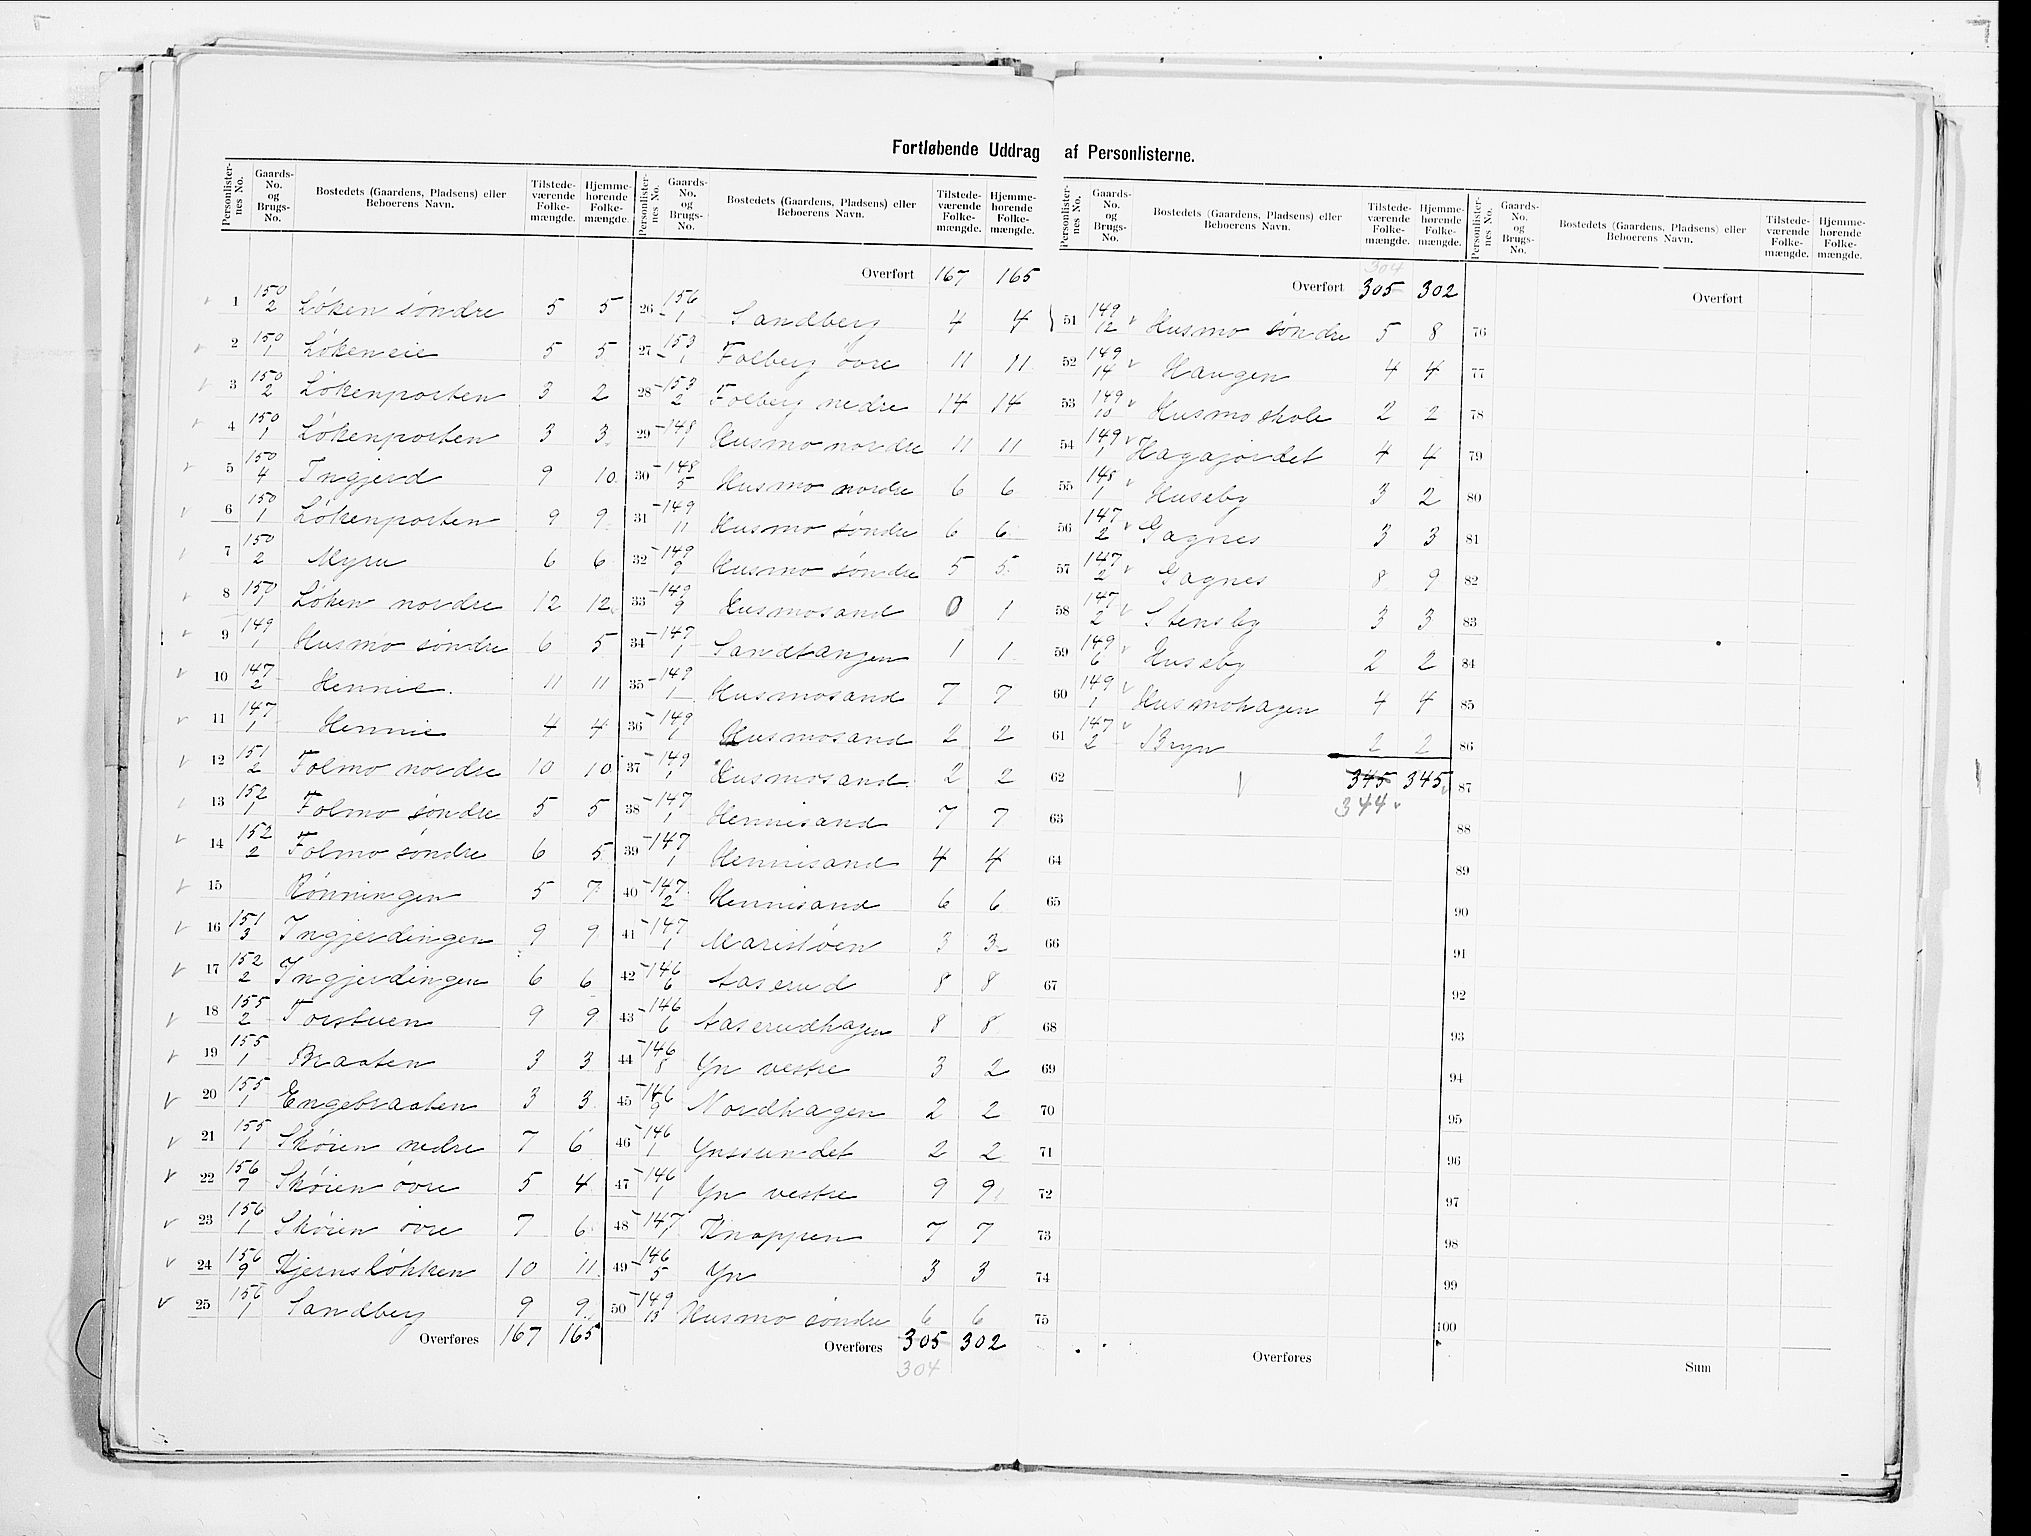 Fortløbende Uddrag af Personlisterne.
Personlister-nes No. | Gaards-No. og Brugs-No. | Bostedets (Gaardens, Pladsens) eller Beboerens Navn. | Tilstede-værende Folke-mængde. | Hjemme-hørende Folke-mængde.
1 150/2 Løken søndre 5 5
2 150/1 Løkeneie 5 5
3 150/2 Løkenporten 3 2
4 150/1 Løkenporten 3 3
5 150/4 Ingjerd 9 10
6 150/1 Løkenporten 9 9
7 150/2 Myra 6 6
8 150/1 Løken nordre 12 12
9 149/1 Husmo søndre 6 5
10 147/2 Hennie. 11 11
11 147/1 Hennie 4 4
12 151/2 Folmo nordre 10 10
13 152/1 Folmo søndre 5 5
14 152/2 Folmo søndre 6 5
15 Rønningen 5 7
16 151/3 Ingjerdingen 9 9
17 152/2 Ingjerdingen 6 6
18 155/2 Torstuen 9 9
19 155/1 Braaten 3 3
20 155/1 Engebraaten 3 3
21 155/1 Skøien nedre 7 6
22 156/7 Skøien øvre 5 4
23 156/1 Skøien øvre 7 6
24 156/9 Kjernsløkken 10 11
25 156/1 Sandberg 9 9
Overføres 167 165
Personlister-nes No. | Gaards-No. og Brugs-No. | Bostedets (Gaardens, Pladsens) eller Beboerens Navn. | Tilstede-værende Folke-mængde. | Hjemme-hørende Folke-mængde.
Overført 167 165
26 156/1 Sandberg 4 4
27 153/1 Folberg øvre 11 11
28 153/2 Folberg nedre 14 14
29 148/1 Husmo nordre 11 11
30 148/5 Husmo nordre 6 6
31 149/11 Husmo søndre 6 6
32 149/9 Husmo søndre 5 5
33 149/9 Husmosand 0 1
34 147/1 Sandtangen 1 1
35 149/1 Husmosand 7 7
36 149/1 Husmosand 2 2
37 149/1 Husmosand 2 2
38 147/1 Hennisand 7 7
39 147/1 Hennisand 4 4
40 147/2 Hennisand 6 6
41 147/1 Maristøen 3 3
42 146/6 Aaserud 8 8
43 146/6 Aaserudhagen 8 8
44 146/8 Yn vestre 3 2
45 146/9 Nordhagen 2 2
46 146/1 Ynssundet 2 2
47 146/1 Yn vestre 9 9
48 147 Knappen 7 7
49 146/5 Yn 3 3
50 149/13 Husmo søndre 6 6
Overføres 305 302
304
Personlister-nes No. | Gaards-No. og Brugs-No. | Bostedets (Gaardens, Pladsens) eller Beboerens Navn. | Tilstede-værende Folke-mængde. | Hjemme-hørende Folke-mængde.
304
Overført 305 302
51 149/12 Husmo søndre 5 8
52 149/14 Haugen 4 4
53 149/10 Husmo skole 2 2
54 149/1 Hagajordet 4 4
55 148/1 Huseby 3 2
56 147/2 Gagnes 3 3
57 147/2 Gagnes 8 9
58 147/2 Stensby 3 3
59 149/6 Huseby 2 2
60 149/1 Husmohagen 4 4
61 147/2 Bryn 2 2
62 345 345
63 344
64
65
66
67
68
69
70
71
72
73
74
75
Overføres
Personlister-nes No. | Gaards-No. og Brugs-No. | Bostedets (Gaardens, Pladsens) eller Beboerens Navn. | Tilstede-værende Folke-mængde. | Hjemme-hørende Folke-mængde.
Overført
76
77
78
79
80
81
82
83
84
85
86
87
88
89
90
91
92
93
94
95
96
97
98
99
100
Sum